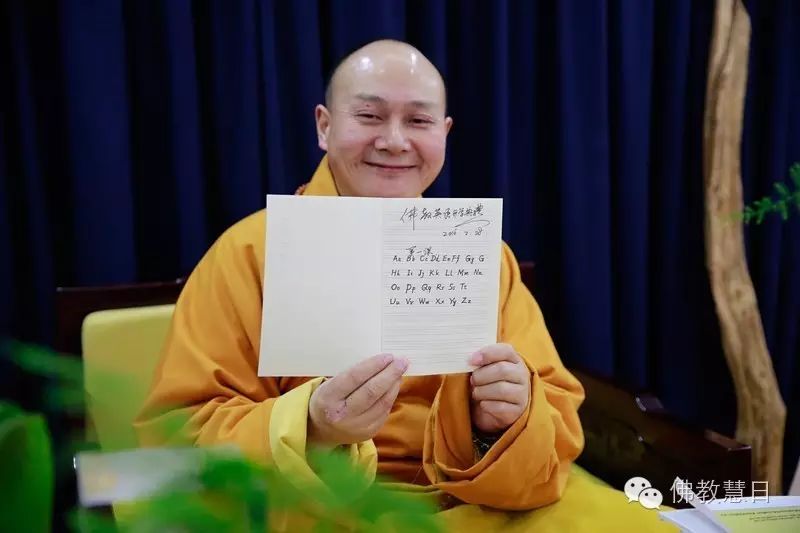 佛教英语开学典礼
2016.2.28
第一课
Aa Bb Cc Dd Ee Ff Gg G
Hh Ii Jj Kk Ll Mm Nn
Oo Pp Qq Rr Ss Tt
Uu Vv Ww Xx Yy Zz
佛教慧日